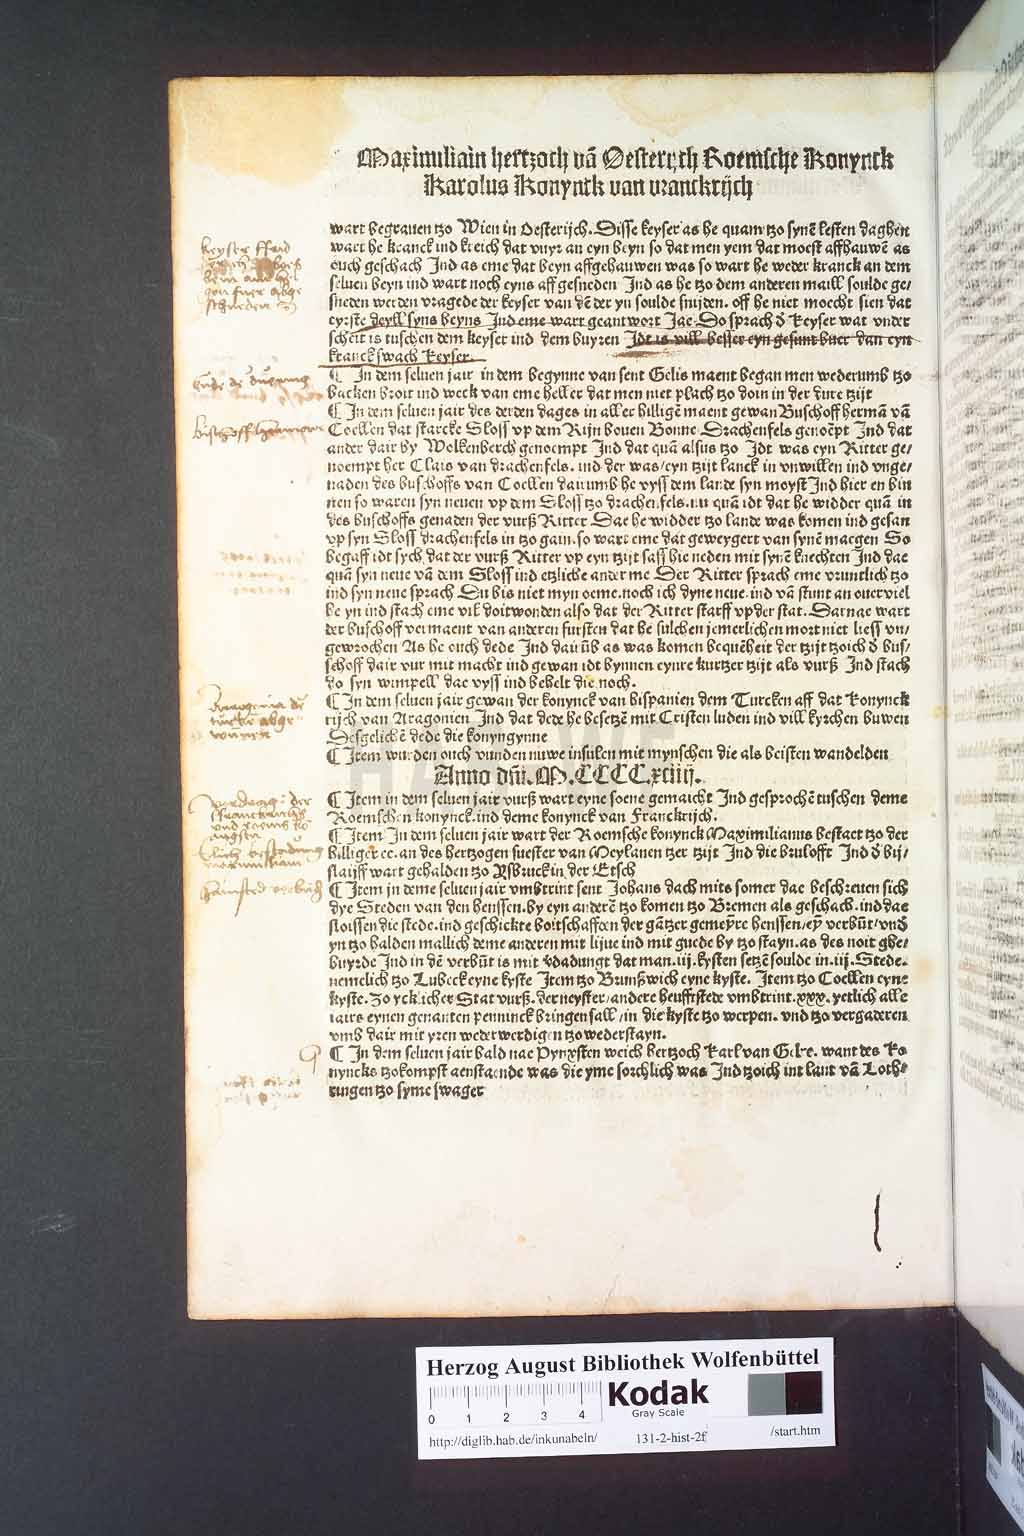 Maximiliain hertzoch vā Oesterych Roemsche Konynck
Karolus Konynck van vranckrijch
wart begrauen tzo Wien in Oesterijch. Disse keyser as he quam tzo synē lesten daghen
wart he kranck ind kreich dat vuyr an eyn beyn so dat men yem dat moest affhauwē as
ouch geschach Ind as eme dat beyn affgehauwen was so wart he weder kranck an dem
seluen beyn ind wart noch eyns aff gesneden Ind as he tzo dem anderen maill soulde ge/
sneden werden vragede der keyser van dē der yn soulde snijden. off he niet moecht sien dat
eyrste deyll syns beyns Ind eme wart geantwort Jae. So sprach d̄ keyser wat vnder
scheit is tuschen dem keyser ind dem buyren Jdt is vill besser eyn gesunt buer dan eyn
kranck swach keyser.
¶ In dem seluen jair in dem begynne van sent Gelis maent began men wederumb tzo
backen broit ind weck van eme heller dat men niet plach tzo doin in der dure tzijt
¶ In dem seluen jair des derden dages in aller hilligē maent gewan Buschoff hermā vā
Coellen dat starcke Sloss vp dem Rijn bouen Bonne Drachenfels genoēpt Ind dat
ander dair by Wolkenberch genoempt Ind dat quā alsus tzo Jdt was eyn Ritter ge/
noempt her Clais van drachenfels. ind der was/eyn tzijt lanck in vnwillen ind vnge/
naden des buschoffs van Coellen darumb he vyss dem lande syn moyst Ind hier en bin
nen so waren syn neuen vp dem Sloss tzo drachenfels. nu quā idt dat he widder quā in
des buschoffs genaden der vurß Ritter Dae he widder tzo lande was komen ind gesan
vp syn Sloss drachenfels in tzo gain. so wart eme dat geweygert van synē maegen So
begaff idt sych dat der vurß Ritter vp eyn tzijt sass hie neden mit synē knechten Ind dae
quā syn neue vā dem Sloss ind etzliche ander me Der Ritter sprach eme vruntlich tzo
ind syn neue sprach Du bis niet myn oeme. noch ich dyne neue. ind vā stunt an ouerviel
he yn ind stach eme vil doitwonden also dat der Ritter starff vp der stat. Darnae wart
der buschoff vermaent van anderen fursten dat he sulchen jemerlichen mort niet liess vn/
gewrochen As he ouch dede Ind dar ūb as was komen bequēheit der tzijt tzoich d̄ bus/
schoff dair vur mit macht ind gewan idt bynnen eynre kurtzer tzijt als vurß Ind stach
do syn wimpell dae vyss ind behelt die noch.
¶ In dem seluen jair gewan der konynck van hispanien dem Turcken aff dat konynck
rijch van Aragonien Ind dat dede he besetzē mit Cristen luden ind vill kyrchen buwen
Desgelichē dede die konyngynne
¶ Item wurden ouch vunden nuwe insulen mit mynschen die als beisten wandelden
Anno dn̄i. M.CCCC.xciiij.
¶ Item in dem seluen jair vurß wart eyne soene gemaicht Ind gesprochē tuschen deme
Roemschen konynck. ind deme konynck van Franckrijch.
¶ Item In dem seluen jair wart der Roemsche konynck Maximilianus bestaet tzo der
billiger ee. an des hertzogen suester van Meylanen tzer tzijt Ind die brulofft Ind d̄ bij/
slaiff wart gehalden tzo Ysbruck in der Etsch
¶ Item in deme seluen jair vmbtrint sent Johans dach mits somer dae beschreuen sich
dye Steden van den henssen. by eyn anderē tzo komen tzo Bremen als geschach. ind dae
sloissen die stede. ind geschickte boitschafften der gātzer gemeyre henssen/eȳ verbūt/vnd
yn tzo halden mallich deme anderen mit lijue ind mit guede by tzo stayn. as des noit ghe/
buyrde Ind in dē verbūt is mit vdadungt dat man .iij. kysten setzē soulde in .iij. Stede.
nemelich tzo Lubeck eyne kyste Item tzo Brunßwich eyne kyste. Item tzo Coellen eyne
kyste. Zo yeklicher Stat vurß. der neyster/andere heufftstede vmbtrint .xxx. yetlich alle
iairs eynen genanten penninck bringen sall/in die kyste tzo werpen. vnd tzo vergaderen
vmb dair mit yren wederwerdigen tzo wederstayn.
¶ In dem seluen jair bald nae Pynxsten weich hertzoch Karl van Gelre. want des Ko
nyncks tzokompst aenstaende was die yme sorchlich was Ind tzoich int lant vā Loth/
ringen tzo syme swager
Herzog August Bibliothek Wolfenbüttel
0 1 2 3 4
Kodak
Gray Scale
http://diglib.hab.de/inkunabeln/ 131-2-hist-2f /start.htm